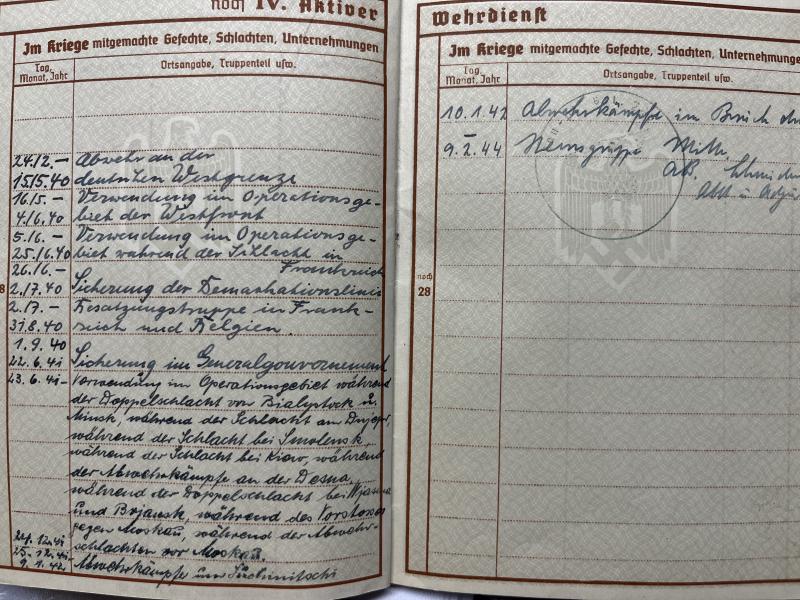 noch IV. Aktiver
Im Kriege mitgemachte Gefechte, Schlachten, Unternehmungen
Tag, Monat, Jahr
Ortsangabe, Truppenteil usw.
24./2.– Abwehr an der
15./5.40 deutschen Westgrenze
16./5.– Verwendung im Operationsge-
4./6.40 biet der Westfront
5./6.– Verwendung im Operationsge-
25./6.40 biet während der Schlacht in
26./6.– Frankreich
2./7.40 Sicherung der Demarkationslinie
2./7.– Besatzungstruppe in Frank-
31.8.40 reich und Belgien.
1.9.40
22.6.41 Sicherung im Generalgouvernement
23.6.41– Verwendung im Operationsgebiet während
der Doppelschlacht von Bialystock u.
Minsk, während der Schlacht am Dnjepr,
während der Schlacht bei Smolensk,
während der Schlacht bei Kiew, während
der Abwehrkämpfe an der Desna,
während der Doppelschlacht bei Wjasma
und Brjansk, während des Vorstosses
gegen Moskau, während der Abwehr-
24.12.41 schlachten vor Moskau.
25.12.41–
9.1.42 Abwehrkämpfe um Suchinitschi
Wehrdienst
Im Kriege mitgemachte Gefechte, Schlachten, Unternehmungen
Tag, Monat, Jahr
Ortsangabe, Truppenteil usw.
10.1.42 Abwehrkämpfe im
9.2.44 Mitte
noch
28